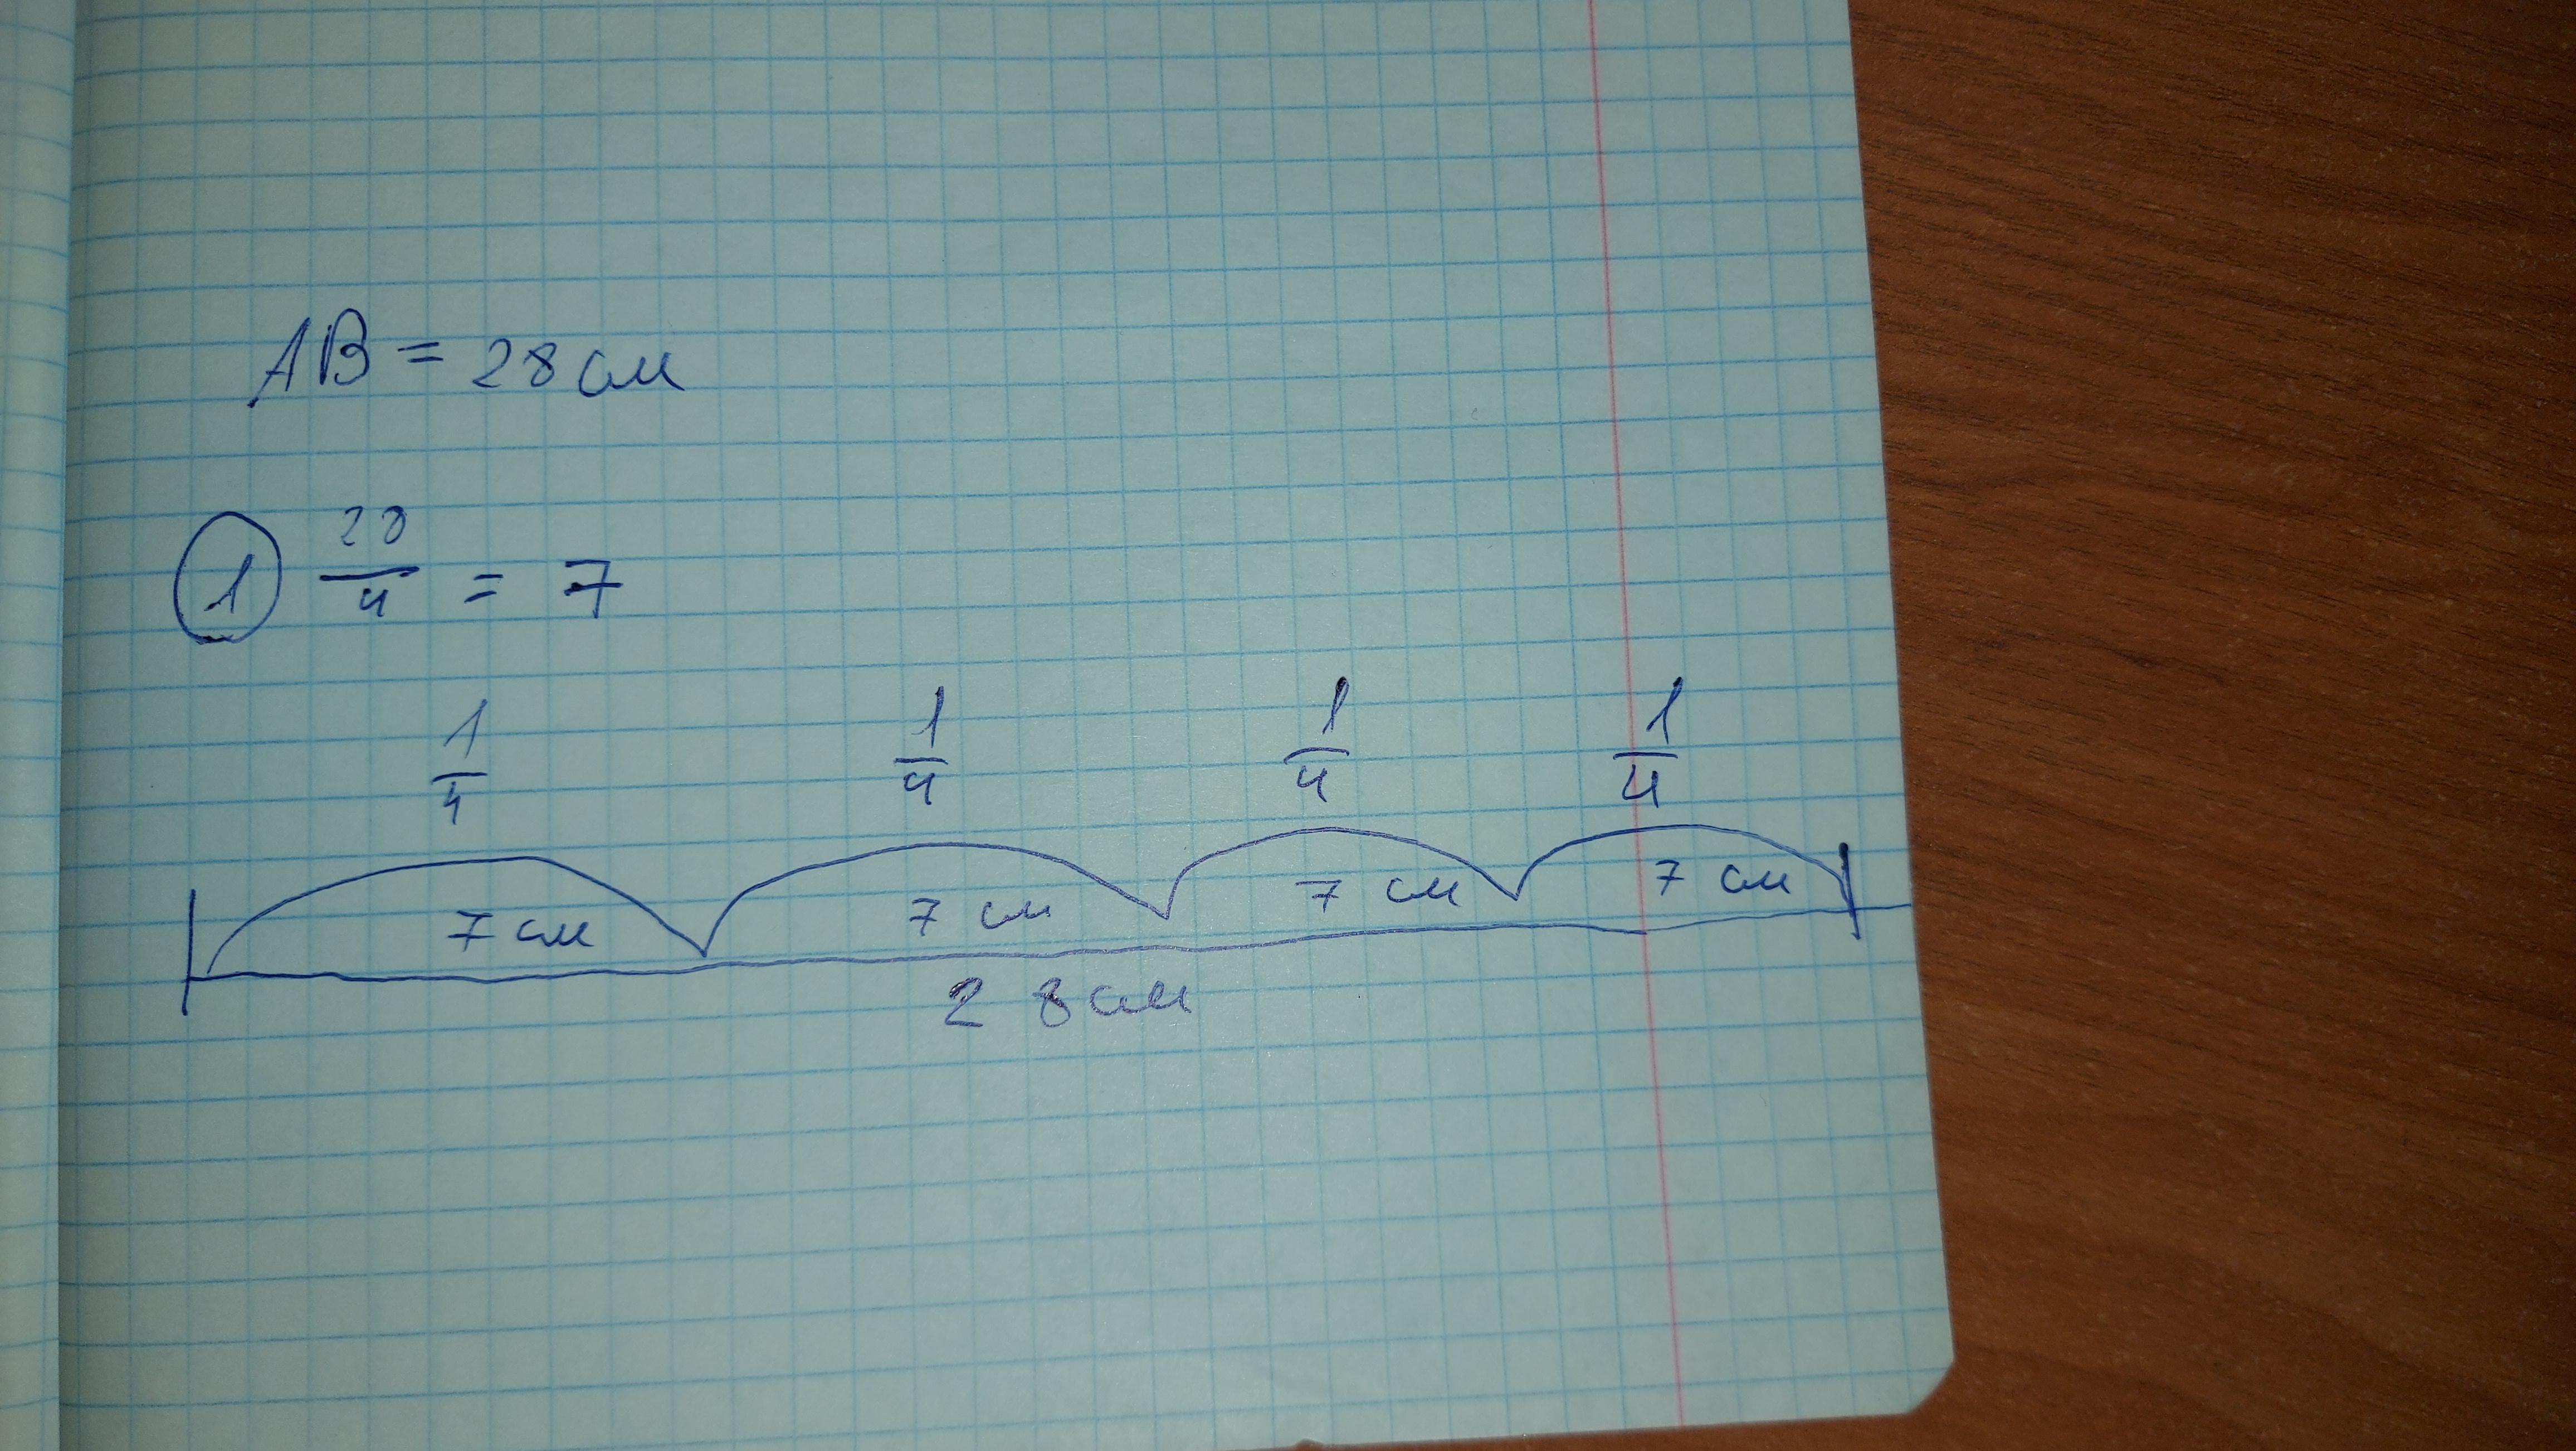 AB = 28 см
① 28/4 = 7
1/4 1/4 1/4 1/4
7 см 7 см 7 см 7 см
28 см